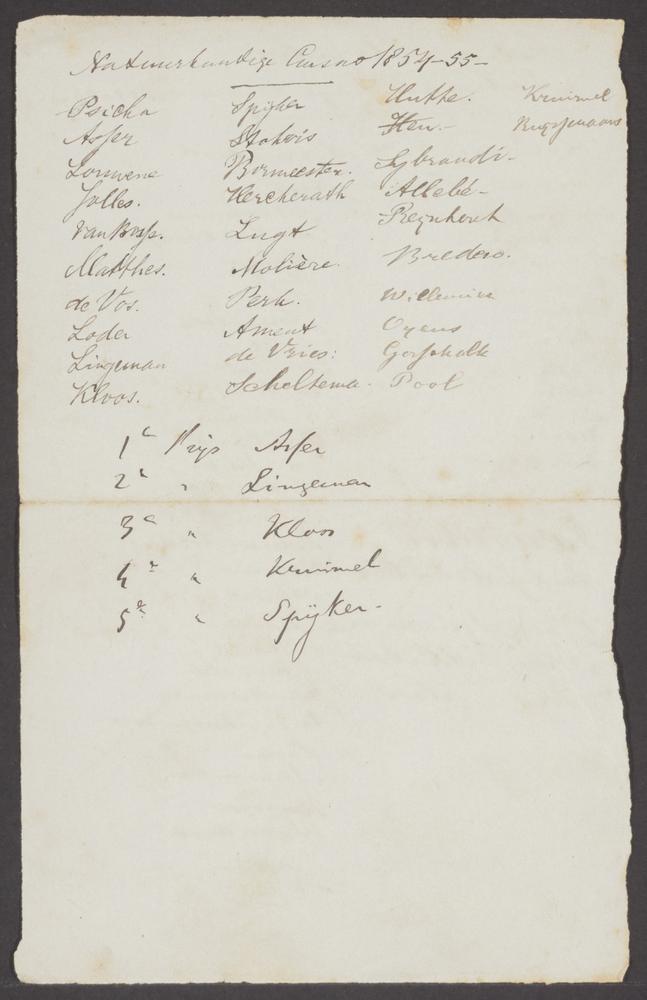 Natuurkundige Cursus 1854-55-
Psicha
Asser
Louwene
Jolles.
van Bosse.
Matthes.
de Vos.
Loder
Lingeman
Kloos.
Spijker
Stokvis
Burmeester.
Kerckerath
Lugt
Molière.
Perk.
Ament
de Vries:
Scheltema.
Hutte.
Heu.-
Sybrandi-
Allebé-
Reynhout
Bredero.
Willemin
Oyens
Gosschalk
Pool
Krummel
1e Prijs Asser
2e " Lingeman
3e " Kloos
4e " Krummel
5e " Spijker-